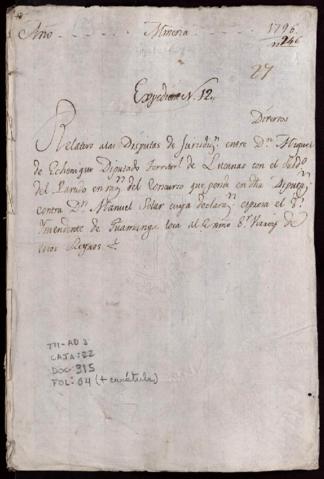 Año Mineria 1796
246
27
Expediente N. 12.
Diversos
Relativo a las Disputas de Jurisdiⁿ. entre Dⁿ. Miguel
de Echenique Diputado Territˡ. de Lucanas con el Subdᵒ.
del Partido en razⁿ. del Concurso que pende en dha Diputⁿ.
contra Dⁿ. Manuel Solar cuya declaraⁿ. espera el Sʳ.
Yntendente de Guamanga toca al Exmo Sʳ. Virrey de
estos Reynos &.
TM-AD 3
CAJA: 22
DOC: 315
FOL: 04 (+ carátula)